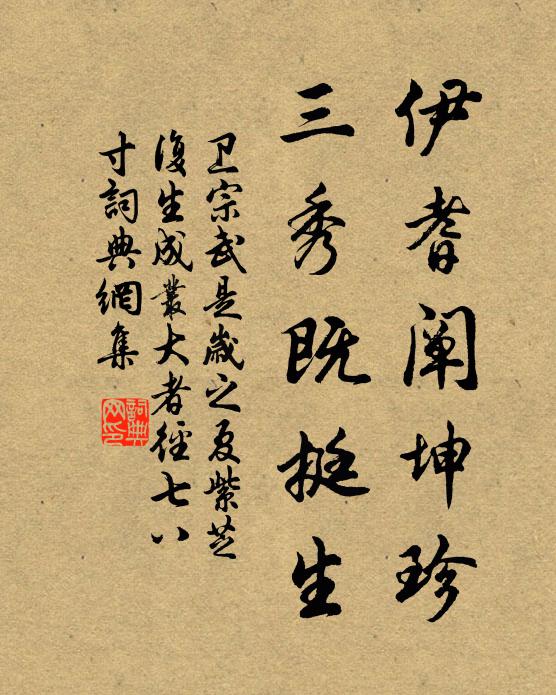 伊耆阐坤珍
三秀既挺生
卫宗武是歲之夏紫芝
復生成叢大者徑七八
寸詞典網集
詞典网印